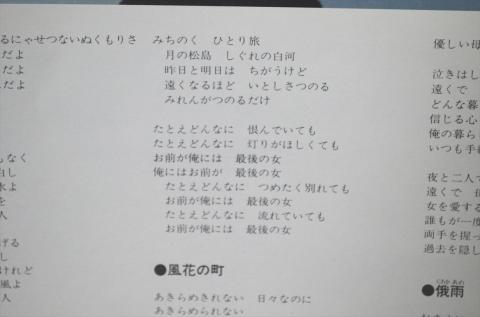 るにゃせつないぬくもりさ
だよ
だよ
だよ
もなく
白し
水よ
を
人
げる
し
けれど
風よ
人
みちのく ひとり旅
月の松島 しぐれの白河
昨日と明日は ちがうけど
遠くなるほど いとしさつのる
みれんがつのるだけ
たとえどんなに 恨んでいても
たとえどんなに 灯りがほしくても
お前が俺には 最後の女
俺にはお前が 最後の女
たとえどんなに つめたく別れても
お前が俺には 最後の女
たとえどんなに 流れていても
お前が俺には 最後の女
●風花の町
あきらめきれない 日々なのに
あきらめられない
優しい母
泣きはし
遠くで
どんな暮
信じる心
俺の暮ら
いつも手紙
夜と二人で
遠くで 母
女を愛する
誰もが一度
両手を握っ
過去を隠し
●俄雨